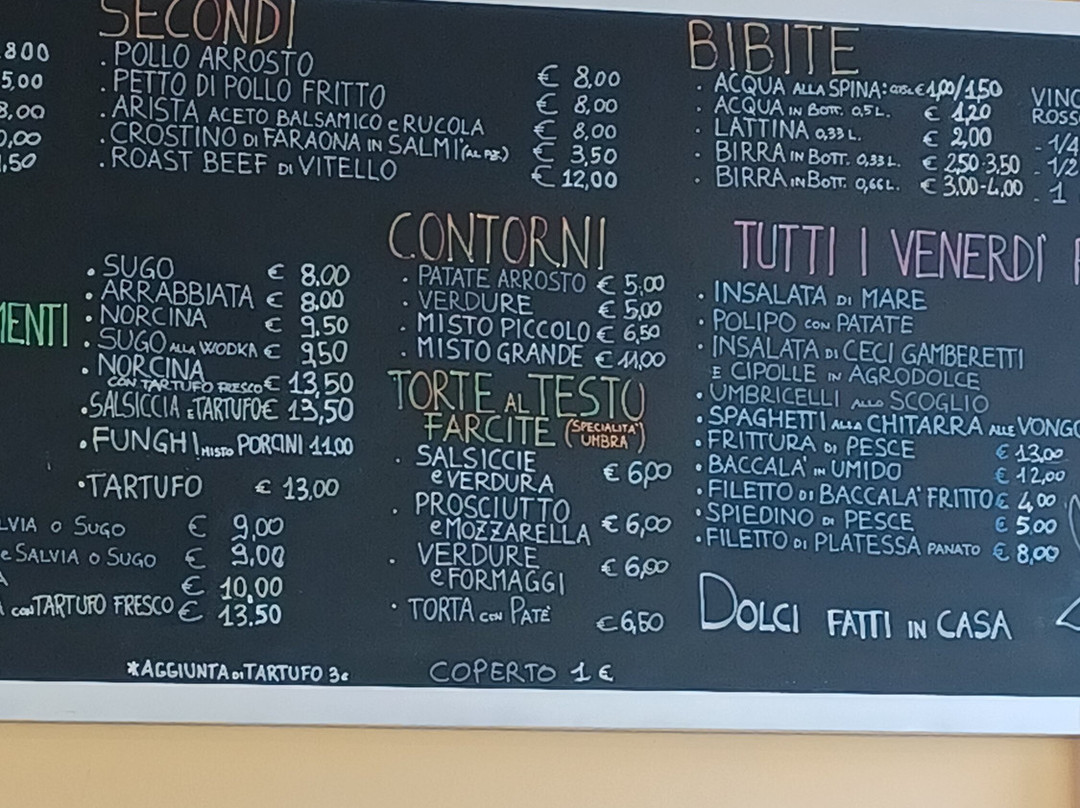 SECONDI
. POLLO ARROSTO € 8,00
. PETTO DI POLLO FRITTO € 8,00
. ARISTA ACETO BALSAMICO e RUCOLA € 8,00
. CROSTINO DI FARAONA IN SALMI' (AL PZ.) € 3,50
. ROAST BEEF DI VITELLO € 12,00
8,00
5,00
8,00
0,00
1,50
BIBITE
. ACQUA ALLA SPINA: € 1,00/1,50
. ACQUA IN BOTT. 0,5 L. € 1,20
. LATTINA 0,33 L. € 2,00
. BIRRA IN BOTT. 0,33 L. € 2,50-3,50
. BIRRA IN BOTT. 0,66 L. € 3,00-4,00
VINO
ROSS
- 1/4
- 1/2
- 1
MENTI
. SUGO € 8,00
. ARRABBIATA € 8,00
. NORCINA € 9,50
. SUGO ALLA WODKA € 9,50
. NORCINA
CON TARTUFO FRESCO € 13,50
. SALSICCIA E TARTUFO € 13,50
. FUNGHI MISTO PORCINI 11,00
. TARTUFO € 13,00
LVIA O SUGO € 9,00
e SALVIA O SUGO € 9,00
A € 10,00
A CON TARTUFO FRESCO € 13,50
*AGGIUNTA DI TARTUFO 3€
CONTORNI
. PATATE ARROSTO € 5,00
. VERDURE € 5,00
. MISTO PICCOLO € 6,50
. MISTO GRANDE € 11,00
TORTE AL TESTO
FARCITE (SPECIALITA'
UMBRA)
. SALSICCIE
e VERDURA € 6,00
. PROSCIUTTO
e MOZZARELLA € 6,00
. VERDURE
e FORMAGGI € 6,00
. TORTA CON PATE' € 6,50
COPERTO 1 €
TUTTI I VENERDÌ
. INSALATA DI MARE
. POLIPO CON PATATE
. INSALATA DI CECI GAMBERETTI
E CIPOLLE IN AGRODOLCE
. UMBRICELLI ALLO SCOGLIO
. SPAGHETTI ALLA CHITARRA ALLE VONGO
. FRITTURA DI PESCE € 13,00
. BACCALA' IN UMIDO € 12,00
. FILETTO DI BACCALA' FRITTO € 4,00
. SPIEDINO DI PESCE € 5,00
. FILETTO DI PLATESSA PANATO € 8,00
DOLCI FATTI IN CASA